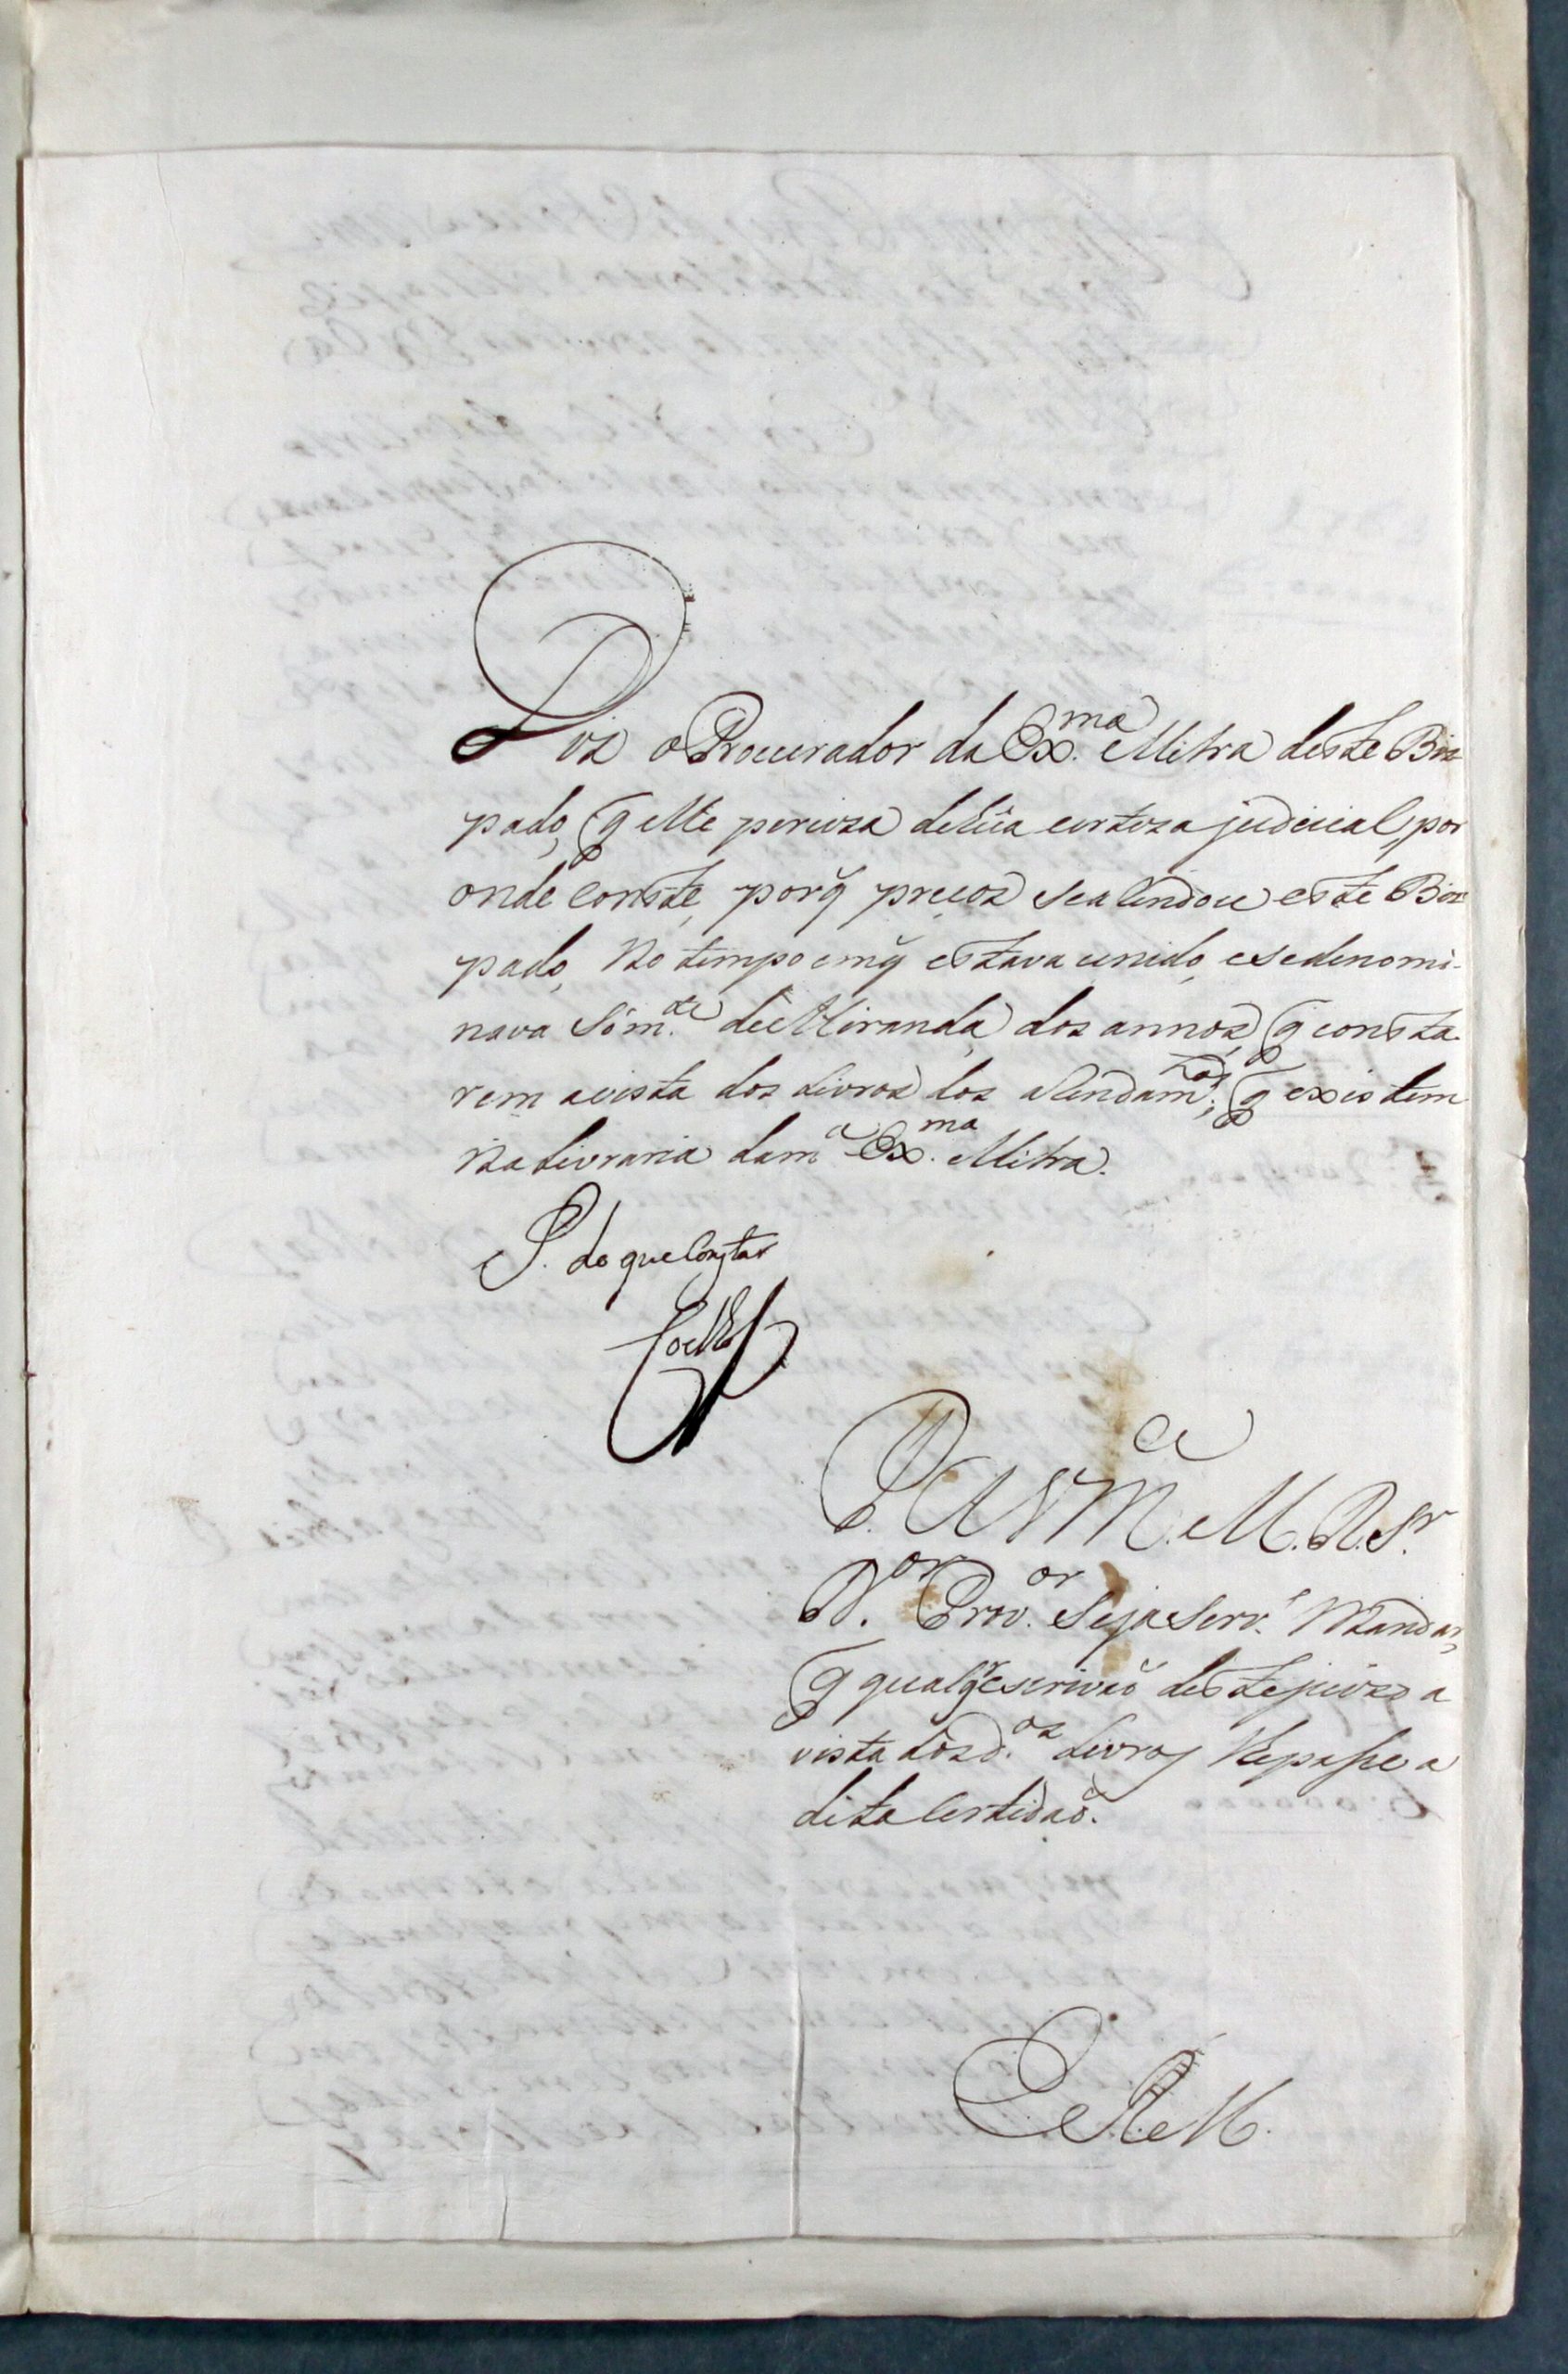 Diz o Procurador da Ex.ma Mitra deste Bis-
pado, q elle perciza de hũa certeza judicial, por
onde conste, porq̃ precos se a Rendou este Bis-
pado, no tempo em q̃ estava unido, e se denomi-
nava sóm.te de Miranda, dos annos, q consta-
rem avista dos Livros dos aRendam.tos, q existem
na Livraria da m.a Ex.ma Mitra.
P. do que Constar
Coelho
P. A V M.ce M. R. Sr.
D.or Prov.or seja serv.o Mandar,
q qualq.r escrivaõ deste juizo a
vista dos d.os Livros lhe passe a
dita Certidaõ.
E R M.